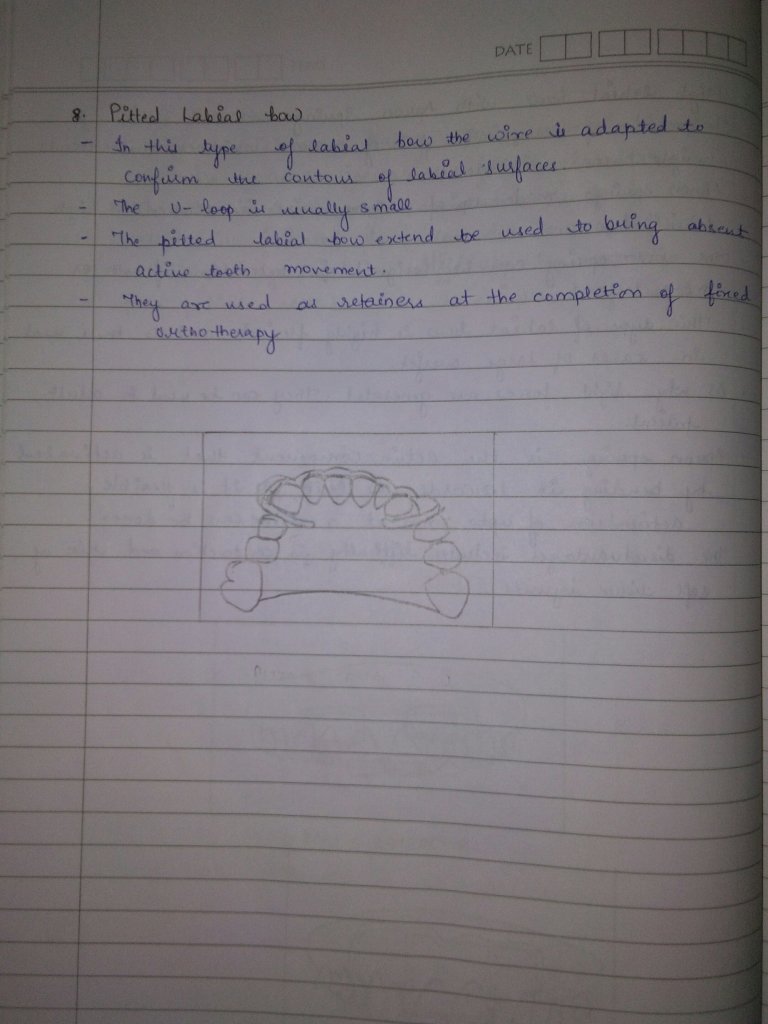 DATE
8. Pitted Labial bow
- In this type of labial bow the wire is adapted to
confirm the contour of labial surfaces.
- The U-loop is usually small
- The pitted labial bow extend be used to bring absent
active tooth movement.
- They are used as retainers at the completion of fixed
orthotherapy